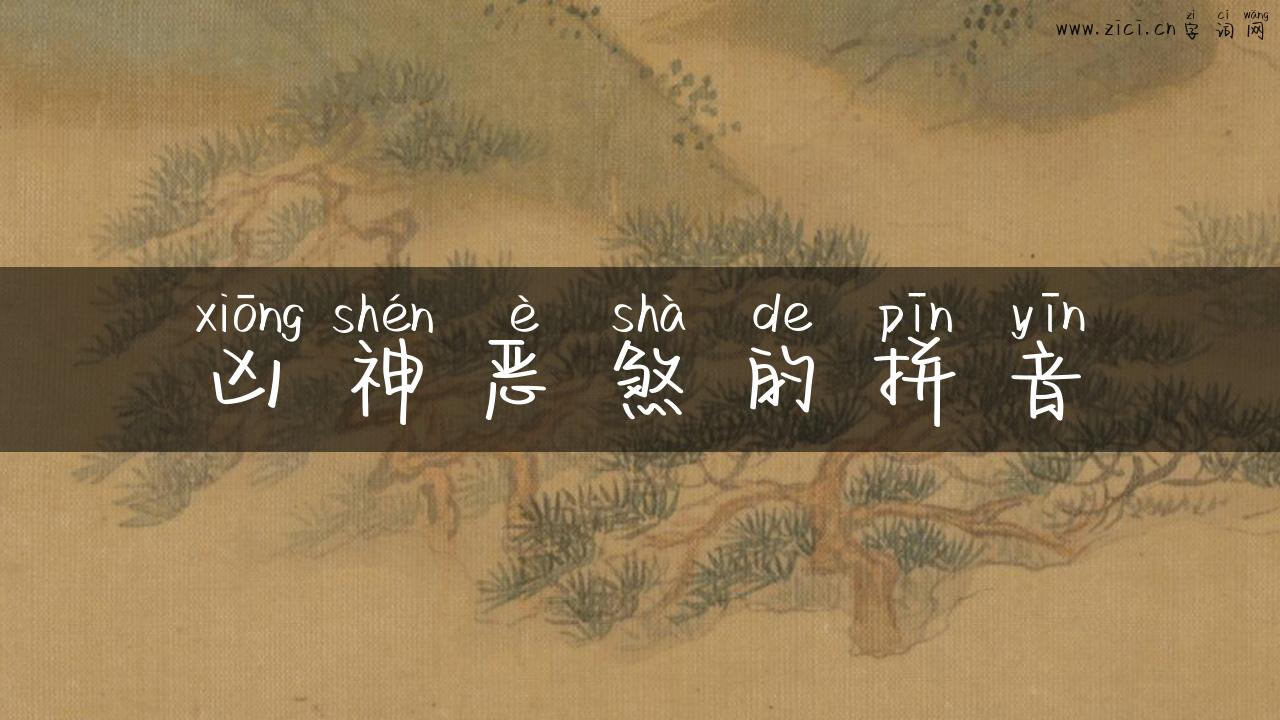 zì cí wǎng
www.zīcī.cn 字词网
xiōng shén è shà de pīn yīn
凶神恶煞的拼音